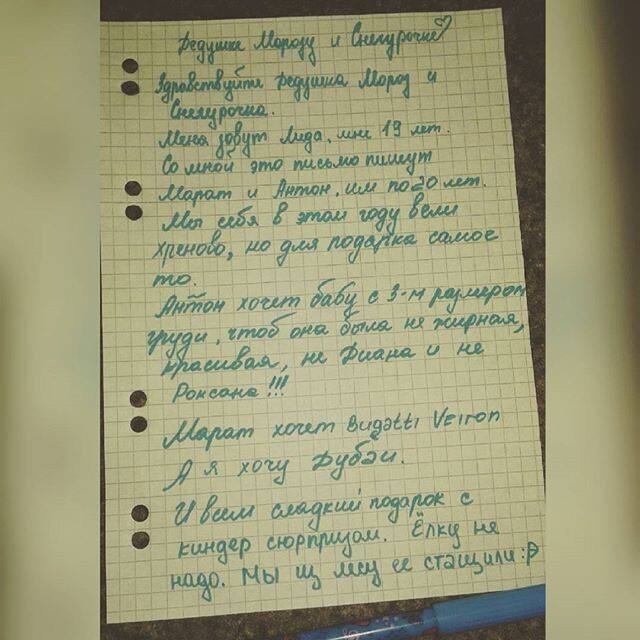 Дедушке Морозу и Снегурочке♡
Здравствуйте Дедушка Мороз и
Снегурочка.
Меня зовут Лида, мне 19 лет.
Со мной это письмо пишут
Марат и Антон, им по 20 лет.
Мы себя в этом году вели
хреново, но для подарка самое
то.
Антон хочет бабу с 3-м размером
груди, чтоб она была не жирная,
красивая, не Диана и не
Роксана!!!
Марат хочет Bugatti Veiron
А я хочу Дубаи.
И всем сладкий подарок с
киндер сюрпризом. Ёлку не
надо. Мы из лесу её стащили :P